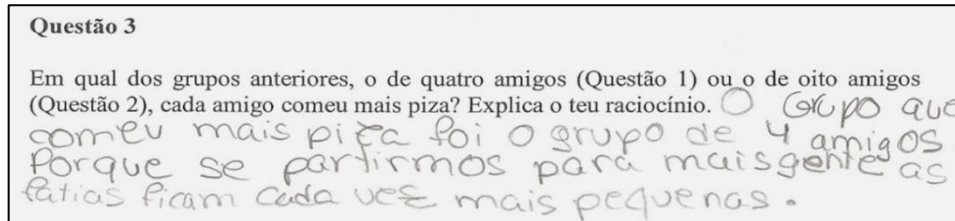 Questão 3
Em qual dos grupos anteriores, o de quatro amigos (Questão 1) ou o de oito amigos
(Questão 2), cada amigo comeu mais piza? Explica o teu raciocínio. O Grupo que
comeu mais piza foi o grupo de 4 amigos
Porque se partirmos para mais gente as
fatias ficam cada vez mais pequenas.